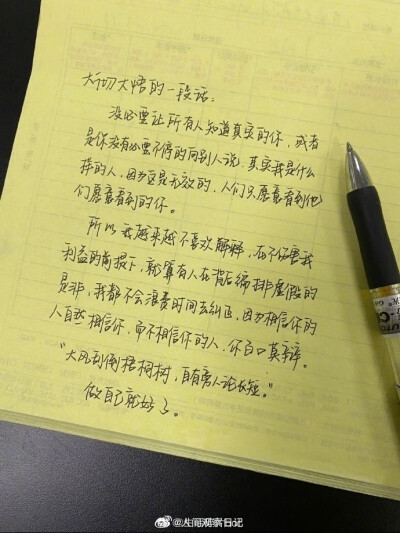 大彻大悟的一段话：
没必要让所有人知道真实的你，或者
是你没有必要不停的向别人说，其实我是什么
样的人，因为这是无效的，人们只愿意看到他
们愿意看到的你。
所以我越来越不喜欢解释，在不伤害我
利益的前提下，就算有人在背后编排虚假的
是非，我都不会浪费时间去纠正，因为相信你的
人自然相信你，而不相信你的人，你百口莫辩。
“大风刮倒梧桐树，自有旁人论长短。”
做自己就好了。
@人间观察日记